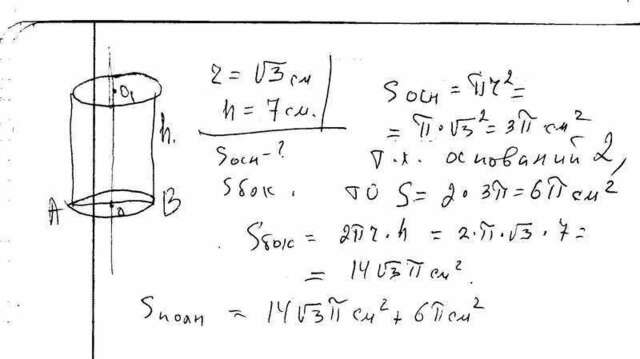 O₁
h.
A O B
r = √3 см
h = 7 см.
Sосн - ?
Sбок.
Sосн = πr² =
= π · √3² = 3π см²
т.к. оснований 2,
то S = 2 · 3π = 6π см²
Sбок = 2πr · h = 2 · π · √3 · 7 =
= 14√3 π см².
Sполн = 14√3 π см² + 6π см²